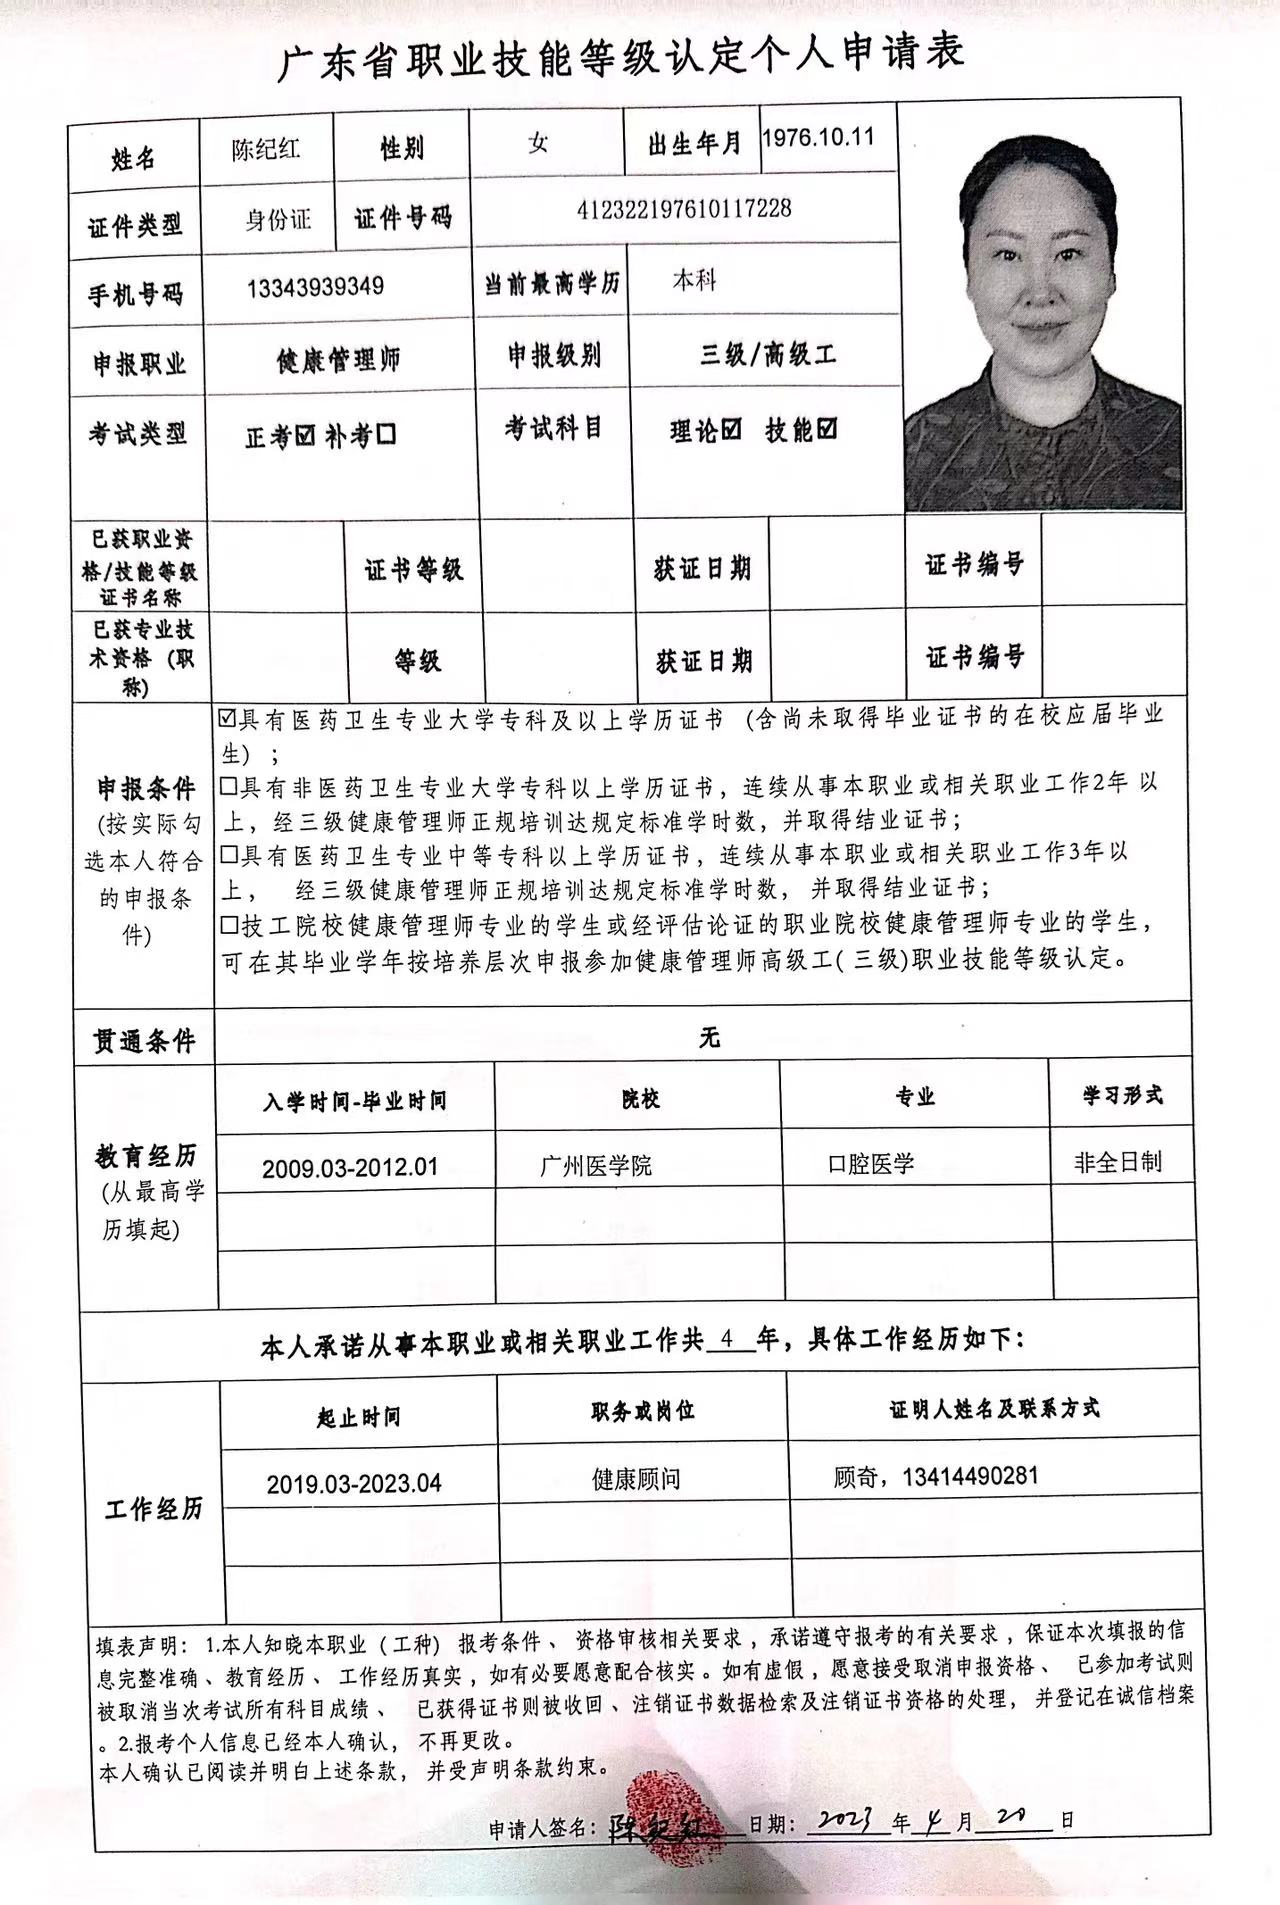 广东省职业技能等级认定个人申请表
姓名 陈纪红 性别 女 出生年月 1976.10.11
证件类型 身份证 证件号码 412322197610117228
手机号码 13343939349 当前最高学历 本科
申报职业 健康管理师 申报级别 三级/高级工
考试类型 正考☑补考☐ 考试科目 理论☑ 技能☑
已获职业资
格/技能等级
证书名称
证书等级 获证日期 证书编号
已获专业技
术资格（职
称)
等级 获证日期 证书编号
申报条件
(按实际勾
选本人符合
的申报条
件)
☑具有医药卫生专业大学专科及以上学历证书 (含尚未取得毕业证书的在校应届毕业
生）;
☐具有非医药卫生专业大学专科以上学历证书，连续从事本职业或相关职业工作2年 以
上，经三级健康管理师正规培训达规定标准学时数，并取得结业证书；
☐具有医药卫生专业中等专科以上学历证书，连续从事本职业或相关职业工作3年以
上， 经三级健康管理师正规培训达规定标准学时数，并取得结业证书；
☐技工院校健康管理师专业的学生或经评估论证的职业院校健康管理师专业的学生，
可在其毕业学年按培养层次申报参加健康管理师高级工( 三级)职业技能等级认定。
贯通条件 无
教育经历
(从最高学
历填起)
入学时间-毕业时间 院校 专业 学习形式
2009.03-2012.01 广州医学院 口腔医学 非全日制
本人承诺从事本职业或相关职业工作共 4 年，具体工作经历如下：
工作经历
起止时间 职务或岗位 证明人姓名及联系方式
2019.03-2023.04 健康顾问 顾奇，13414490281
填表声明： 1.本人知晓本职业（工种）报考条件、 资格审核相关要求，承诺遵守报考的有关要求，保证本次填报的信
息完整准确、教育经历、 工作经历真实，如有必要愿意配合核实。如有虚假，愿意接受取消申报资格、 已参加考试则
被取消当次考试所有科目成绩 、 已获得证书则被收回、注销证书数据检索及注销证书资格的处理，并登记在诚信档案
。2.报考个人信息已经本人确认， 不再更改。
本人确认已阅读并明白上述条款，并受声明条款约束。
申请人签名：陈纪红 日期：2023 年 4 月 20 日